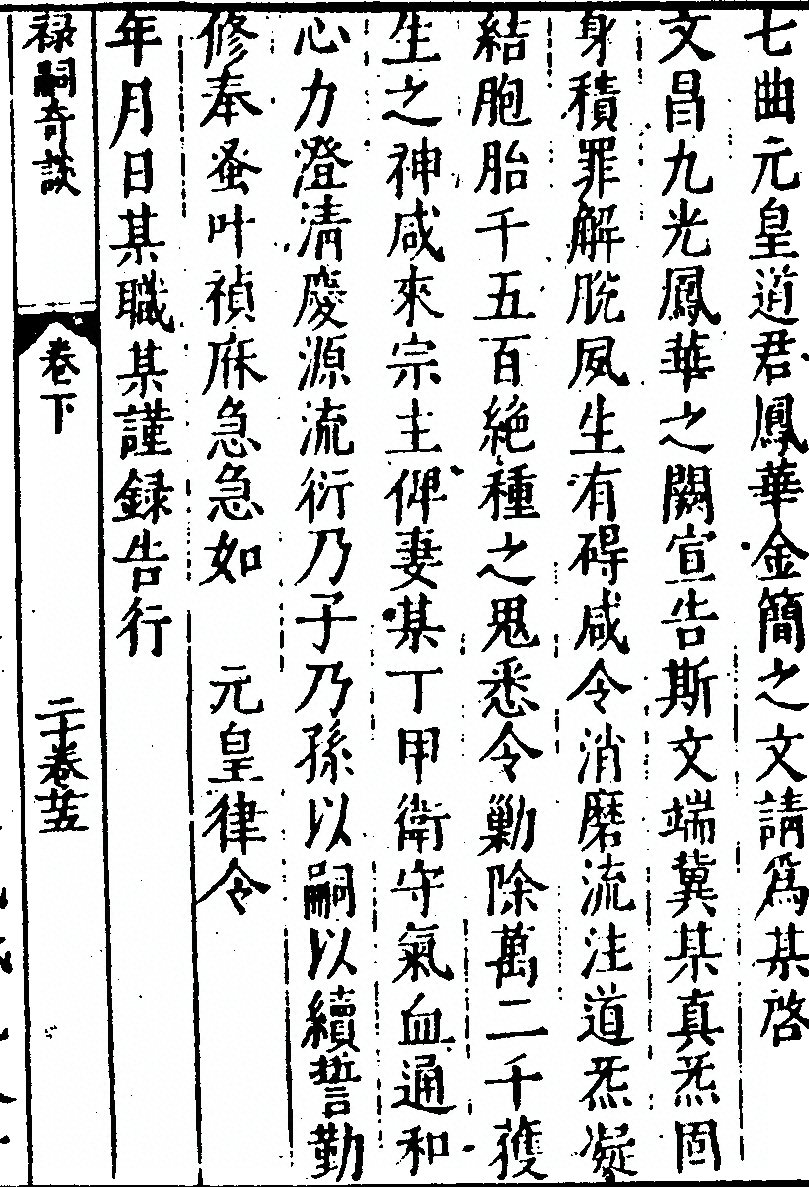 七曲元皇道君鳳華金簡之文請爲某啓
文昌九光鳳華之闕宣告斯文端冀某真炁固
身積罪解脫夙生有碍咸令消磨流注道炁凝
結胞胎千五百絶種之鬼悉令勦除萬二千獲
生之神咸來宗主俾妻某丁甲衛守氣血通和
心力澄清慶源流衍乃子乃孫以嗣以續誓勤
修奉蚤叶禎庥急急如 元皇律令
年月日某職某謹録告行
禄嗣奇談
卷下
二十卷廿五